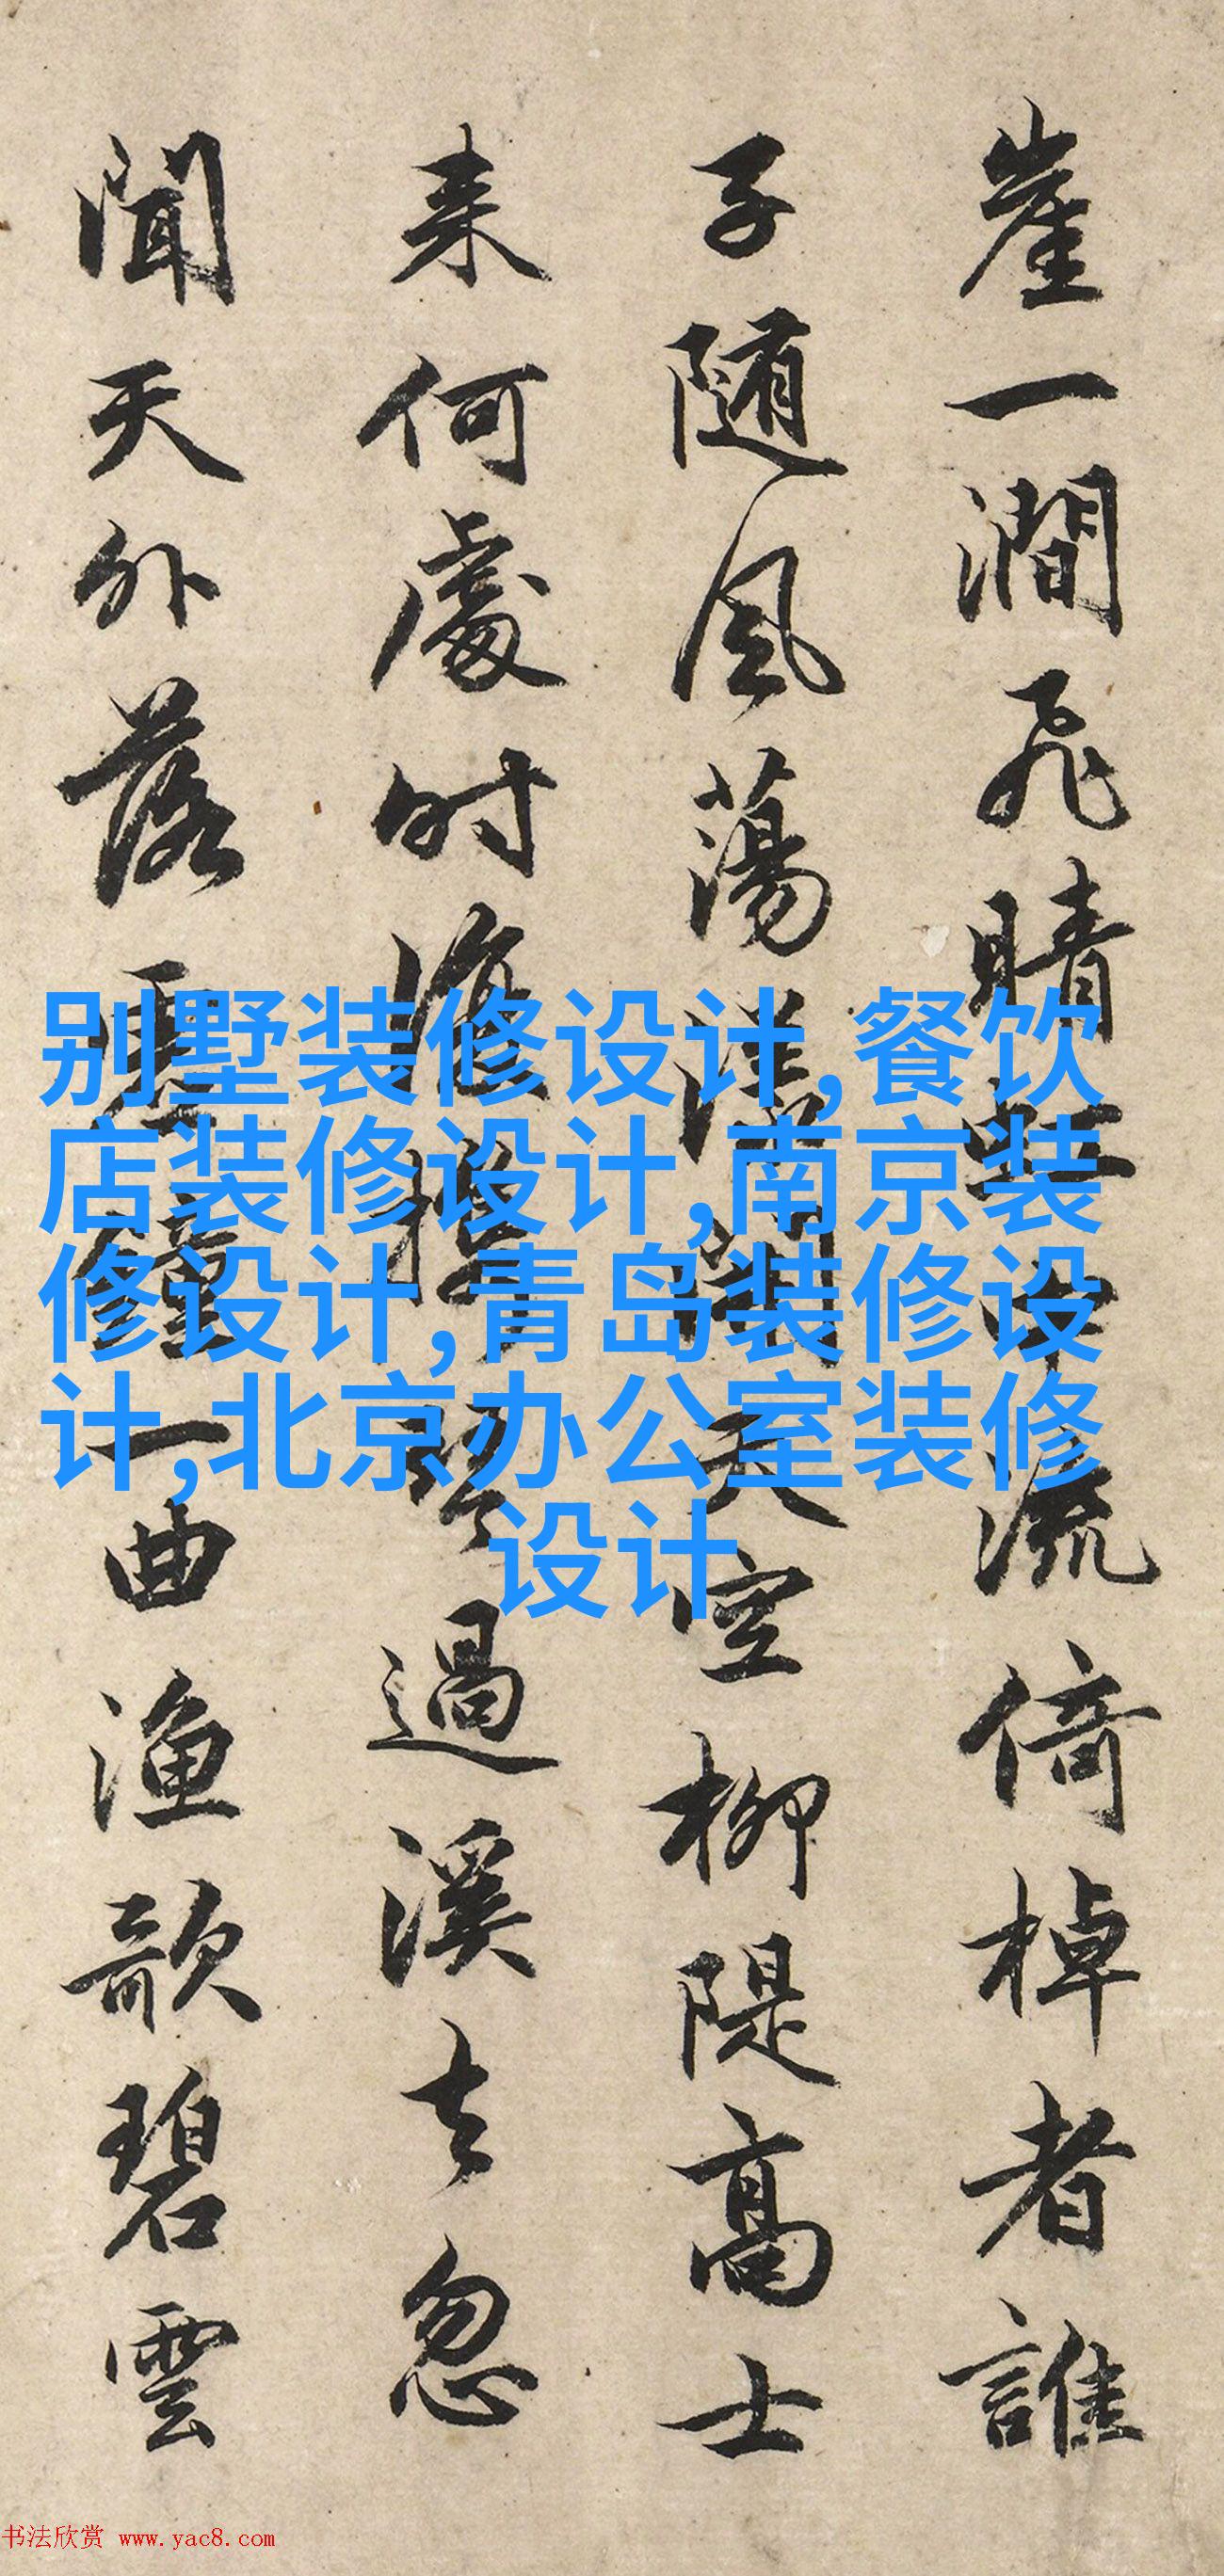 崖一澗飛晴虹中流倚棹者誰
子随風蕩漾天空柳隄高士
来何處時復携琴過溪去忽
聞天外落鐘一曲渔歌碧雲
别墅装修设计,餐饮
店装修设计,南京装
修设计,青岛装修设
计,北京办公室装修
设计
书法欣赏 www.yac8.com